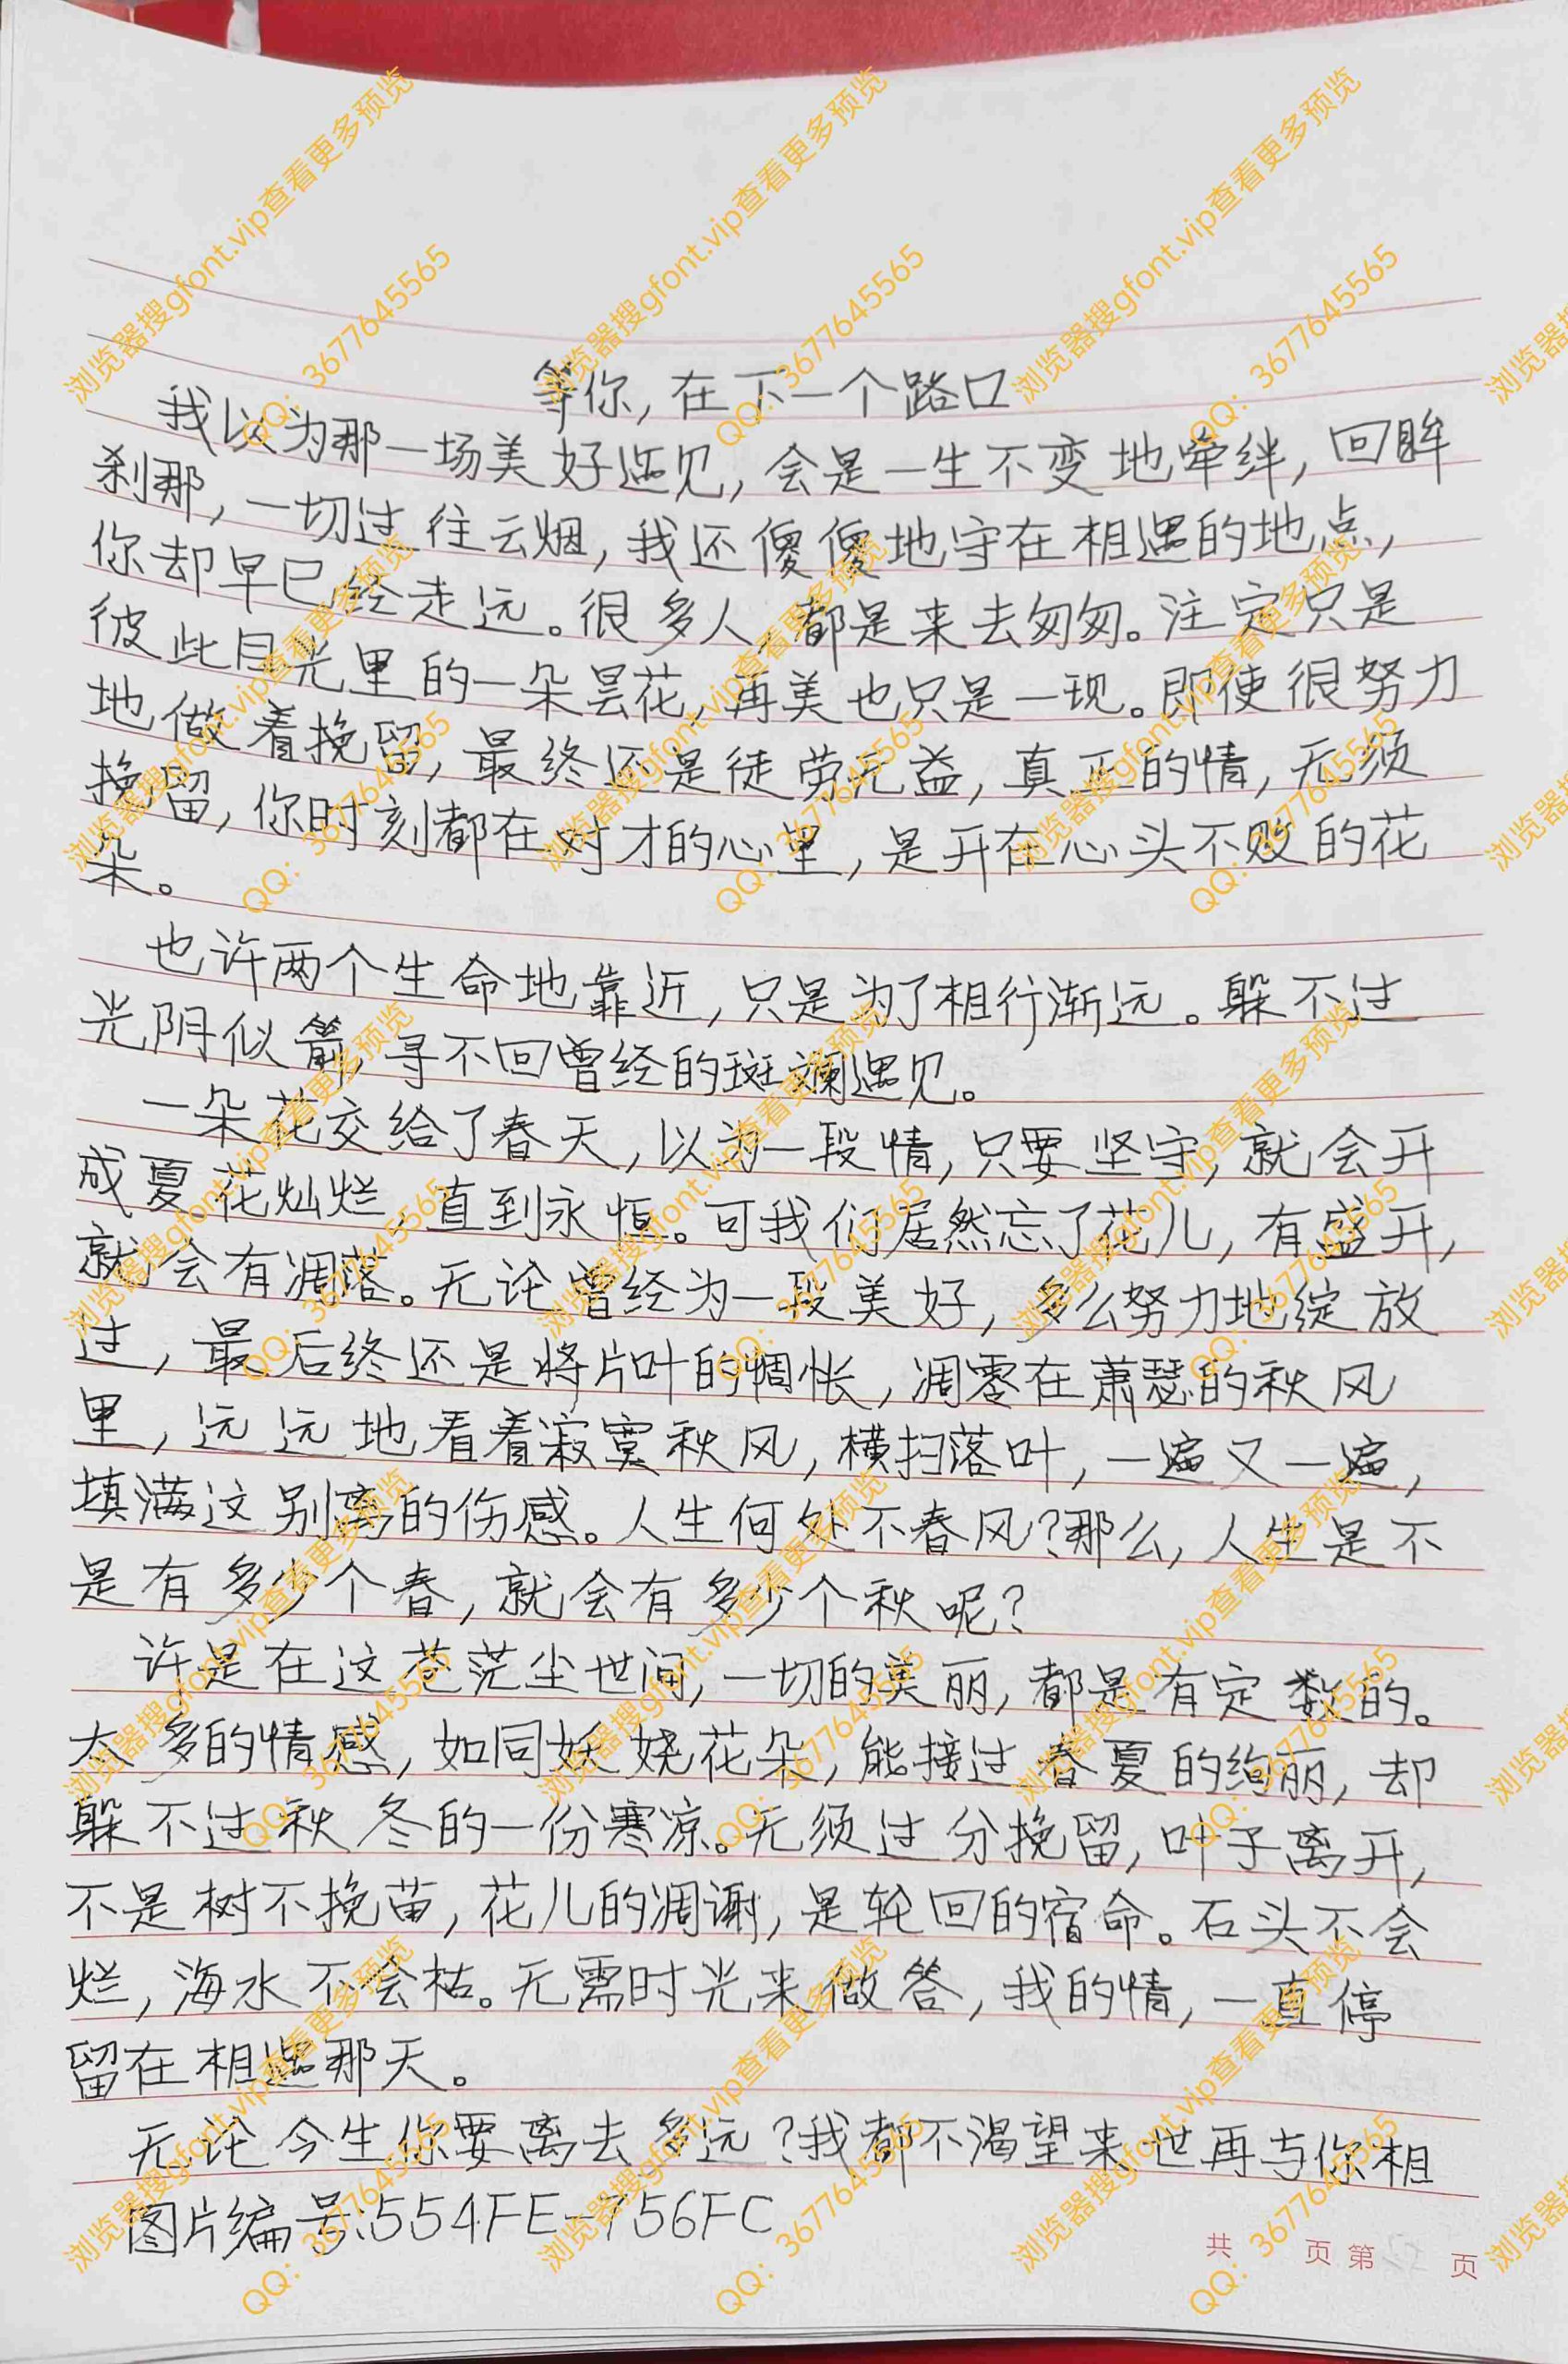 等你,在下一个路口
我以为那一场美好遇见,会是一生不变地牵绊,回眸
刹那,一切过往云烟,我还傻傻地守在相遇的地点,
你却早已经走远。很多人,都是来去匆匆。注定只是
彼此目光里的一朵昙花,再美也只是一现。即使很努力
地做着挽留,最终还是徒劳无益,真正的情,无须
挽留,你时刻都在对才的心里,是开在心头不败的花
朵。
也许两个生命地靠近,只是为了相行渐远。躲不过
光阴似箭,寻不回曾经的斑斓遇见。
一朵花交给了春天,以为一段情,只要坚守,就会开
成夏花灿烂,直到永恒。可我们居然忘了花儿,有盛开,
就会有凋落。无论曾经为一段美好,多么努力地绽放
过,最后终还是将片叶的惆怅,凋零在萧瑟的秋风
里,远远地看着寂寞秋风,横扫落叶,一遍又一遍,
填满这别离的伤感。人生何处不春风?那么,人生是不
是有多少个春,就会有多少个秋呢?
许是在这苍茫尘世间,一切的美丽,都是有定数的。
太多的情感,如同妖娆花朵,能接过春夏的绚丽,却
躲不过秋冬的一份寒凉。无须过分挽留,叶子离开,
不是树不挽苗,花儿的凋谢,是轮回的宿命。石头不会
烂,海水不会枯。无需时光来做答,我的情,一直停
留在相遇那天。
无论今生你要离去多远?我都不渴望来世再与你相
图片编号:554FE-756FC
共 页 第 页
浏览器搜gfont.vip查看更多预览
QQ: 3677645565